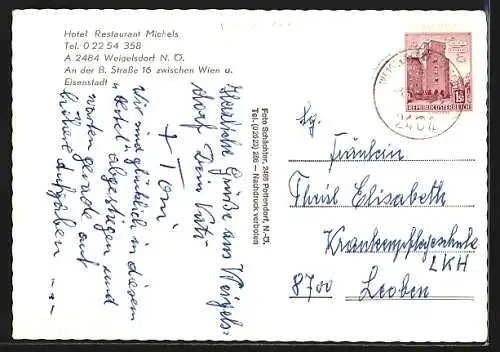 Hotel Restaurant Michels
Tel. 0 22 54 358
A 2484 Weigelsdorf N. Ö.
An der B. Straße 16 zwischen Wien u.
Eisenstadt
Herzliche Grüße aus Weigels-
dorf Dein Vati
+ Toni
Wir sind glücklich in diesem
Hotel abgestiegen und
warten gerade auf
Foto Schächter, 2485 Pottendorf, N.-Ö.
Tel. (02623) 286 – Nachdruck verboten
REPUBLIK ÖSTERREICH
2484
Fräulein
Elisabeth
Krankenpflegeschule
LKH
8700 Leoben